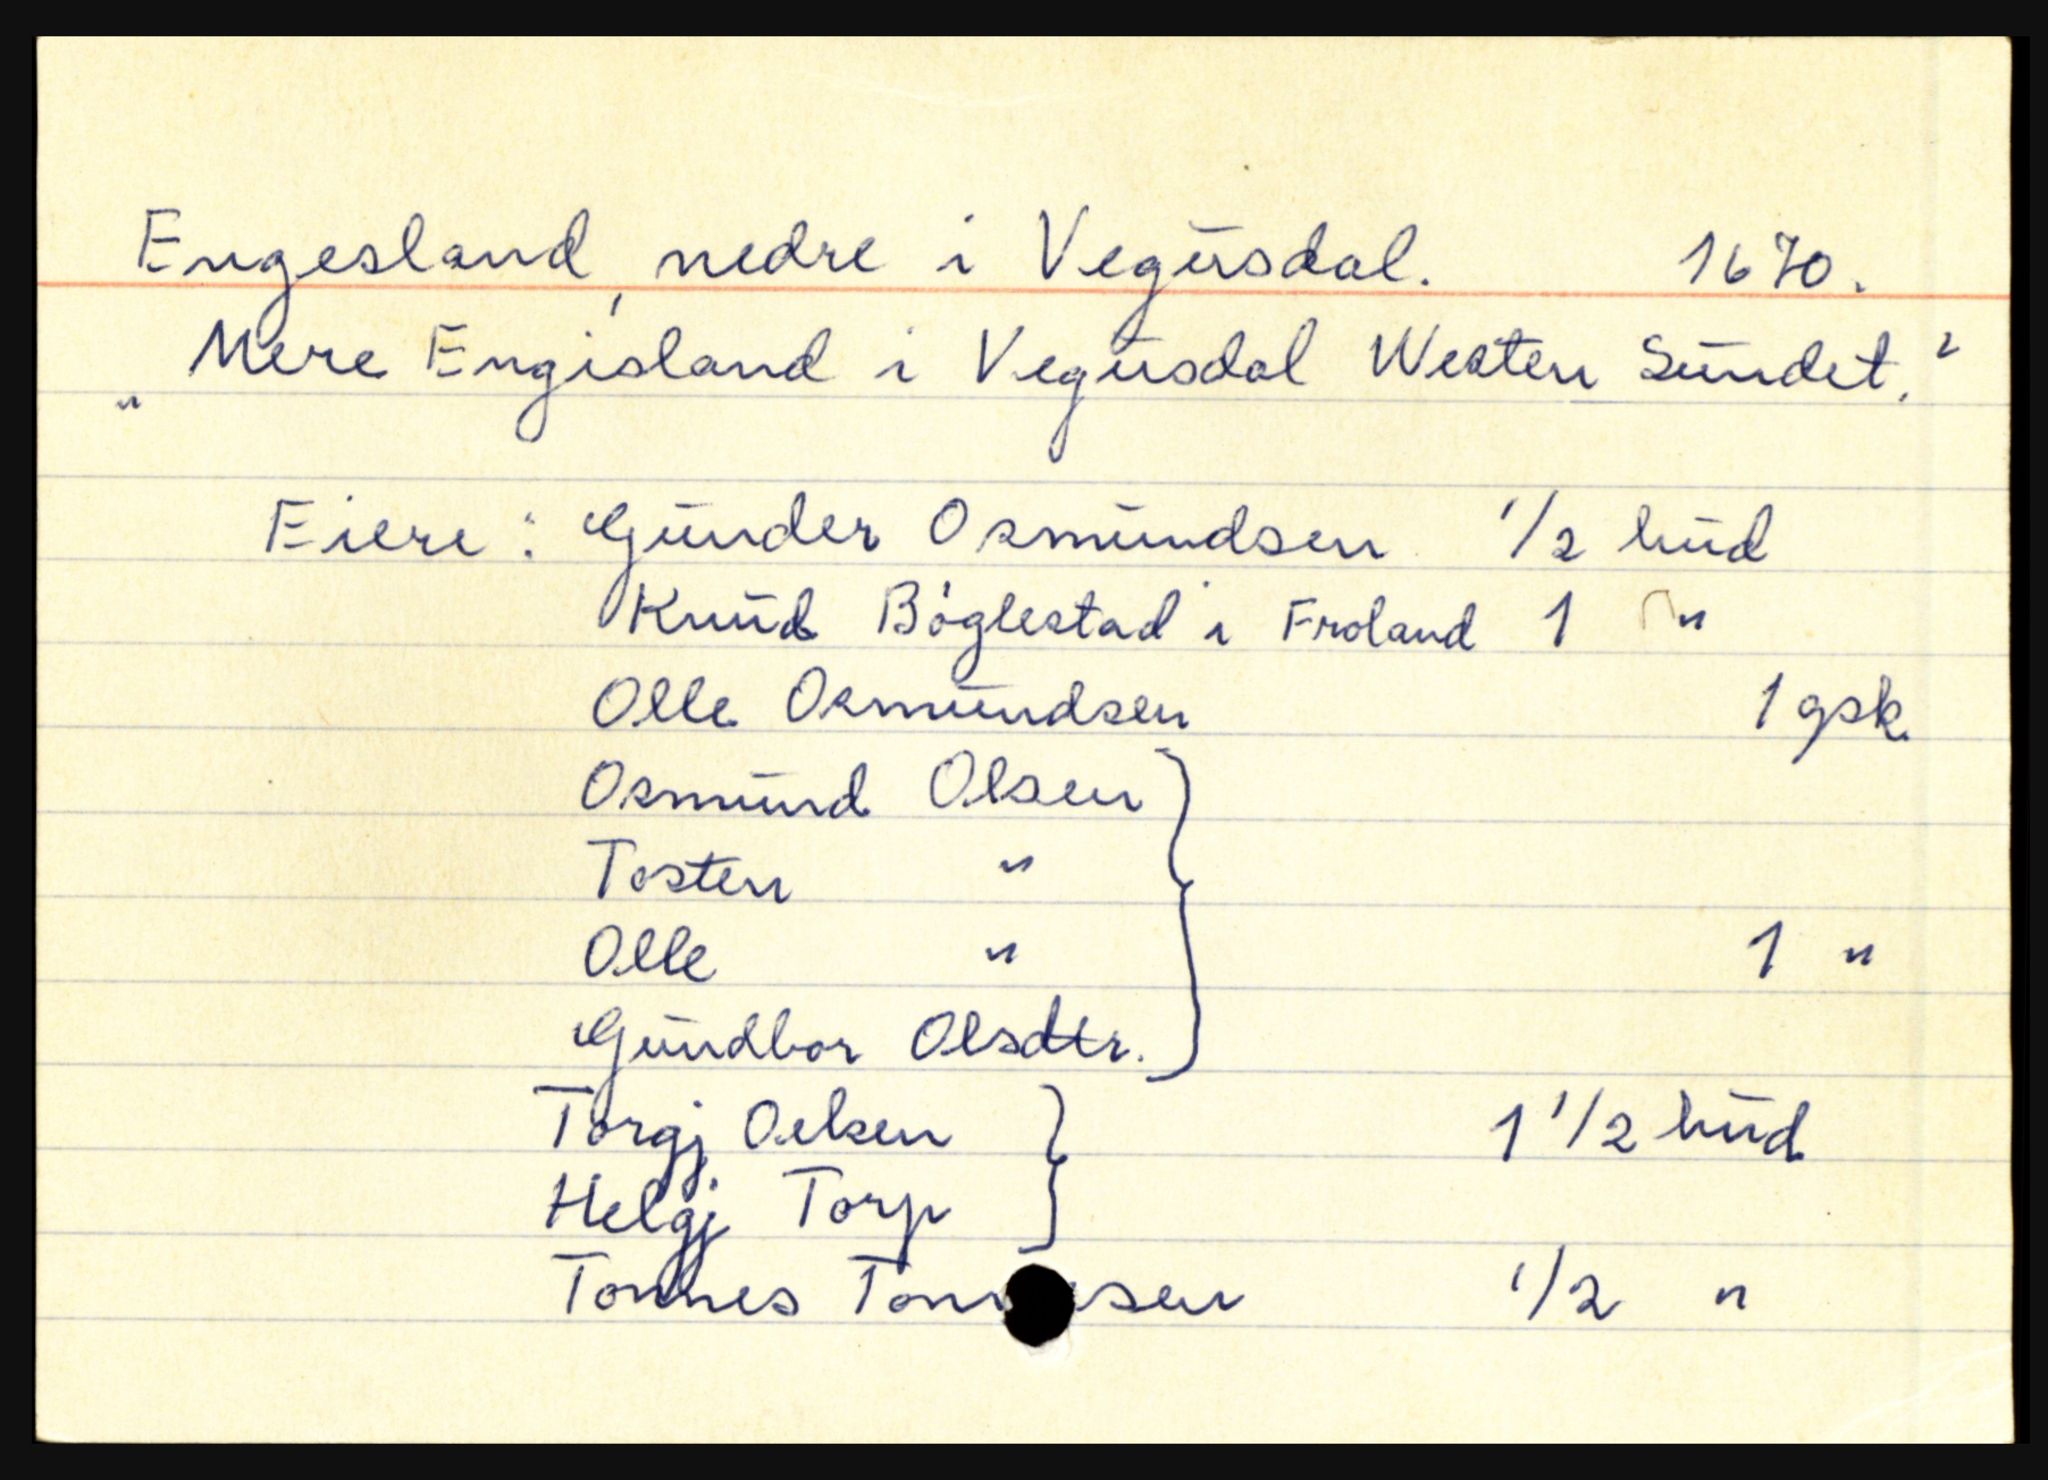 Engesland, nedre i Vegusdal. 1670.
„Mere Engisland i Vegusdal Westen Sundet."
Eiere: Gunder Osmundsen 1/2 hud
Knud Böglestad i Froland 1 "
Olle Osmundsen 1 gsk.
Osmund Olsen
Tosten "
Olle " 1 "
Gundbor Olsdtr.
Torgj Oelsen 1 1/2 hud
Helgj Torp
Tonnes 1/2 "